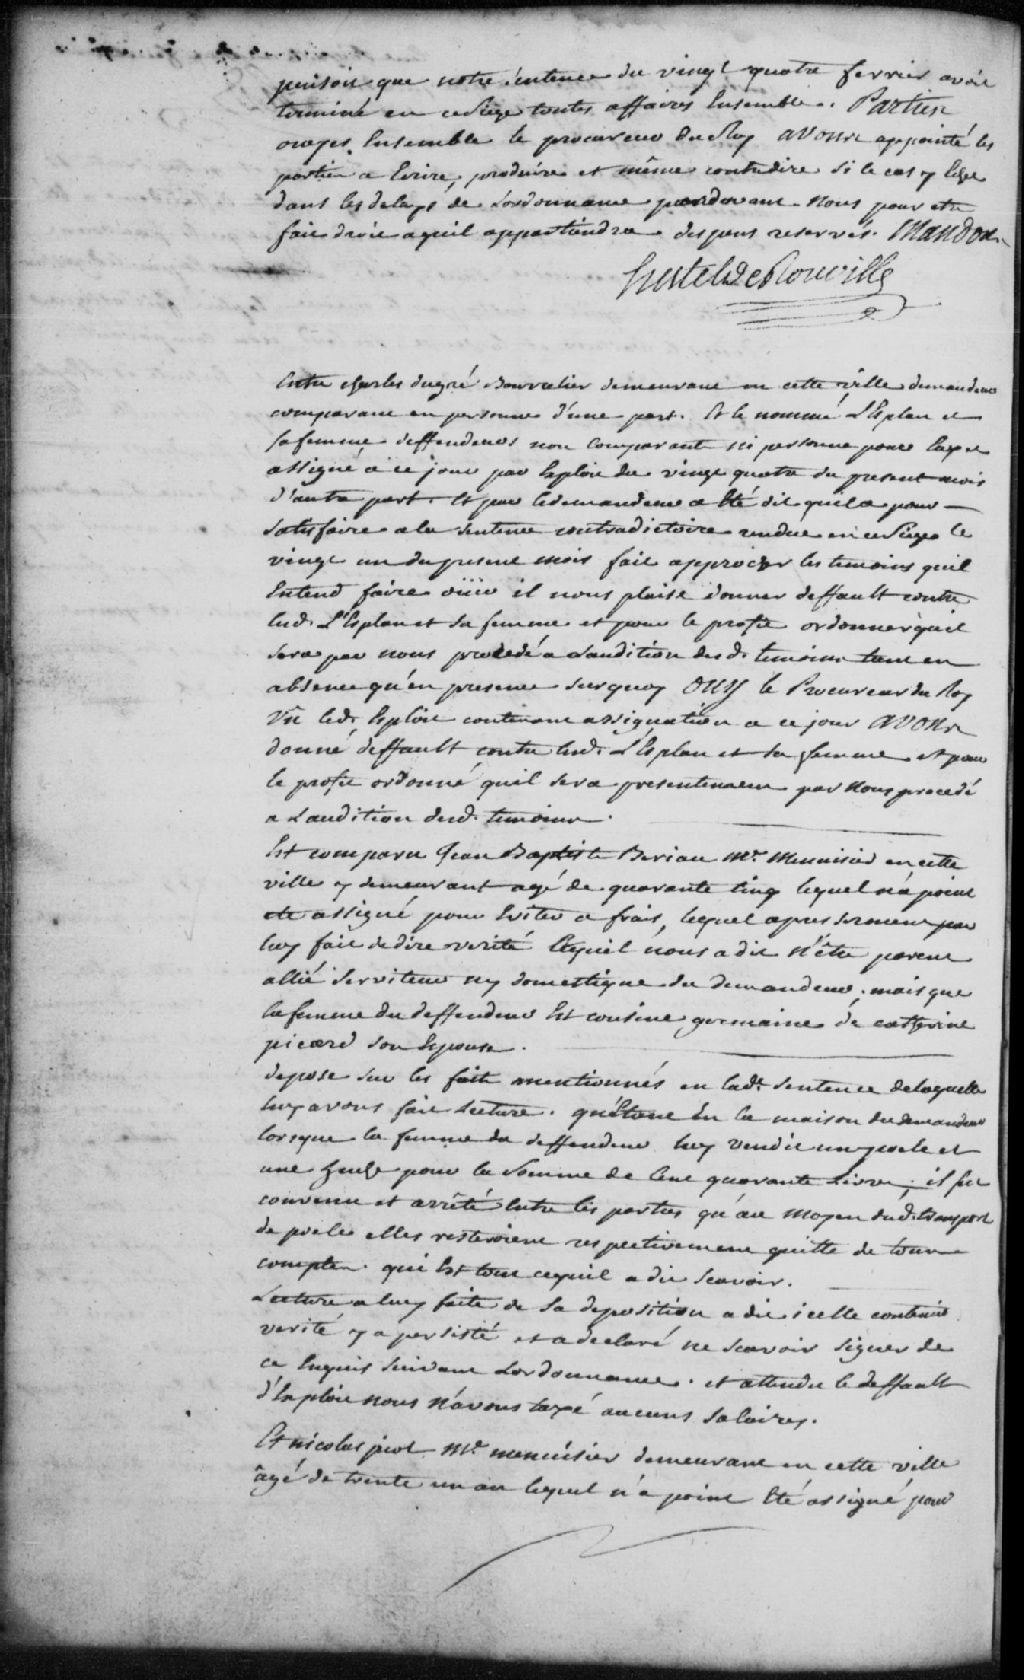 pensoit que notre sentence du vingt quatre fevrier avoit
terminé en ce siege toutes affaires Ensemble. Parties
ouyes Ensemble le procureur du Roy avons appointé les
parties a Ecrire, produire et même contredire si le cas y Echet
dans les delays de L'ordonnance pardevant Nous pour etre
fait droit a quil appartiendra depens reservés. Mandons
hertel De Rouville
Entre charles dugré Bourrelier demeurant en cette ville demandeur
comparant en personne d'une part. Et le nommé L'Esplan et
sa femme deffendeurs non comparant ni personne pour Eux
assigné a ce jour par Exploit du vingt quatre du present mois
d'autre part. Et par le demandeur a Eté dit quil a pour
satisfaire a la sentence contradictoire rendue en ce siege le
vingt un du present mois fait approcher les temoins quil
Entend faire oüir il nous plaise donner deffault contre
lesd. L'Esplan et sa femme et pour le profit ordonner quil
sera par nous procedé a L'audition desd. temoins tant en
absence qu'en presence surquoy OUY le Procureur du Roy
Vû led. Exploit contenant assignation a ce jour avons
donné deffault contre lesd. L'Esplan et sa femme et pour
le profit ordonné quil sera presentement par Nous procedé
a L'audition desd. temoins.
Est comparu Jean Baptiste Beriau Me. Menuisier en cette
ville y demeurant agé de quarante cinq lequel n'a point
eté assigné pour Eviter a frais, lequel apres serment par
luy fait de dire verité lequel nous a dit N'être parent
allié serviteur ny domestique du demandeur, mais que
la femme du deffendeur Est cousine germaine de catherine
picard son Epouse.
depose sur les faits mentionnés en lade. sentence de laquelle
luy avons fait lecture. qu'étant En la maison du demandeur
lorsque la femme du deffendeur luy vendit un poele et
une pour la somme de Cent quarante livres, il fut
convenu et arrêté Entre les parties qu'au Moyen dud. transport
de poele elles resteroient respectivement quitte de tous
comptes. qui Est tout ce quil a dit scavoir.
Lecture a luy faite de sa deposition a dit icelle contenir
verité y a persisté et a declaré ne scavoir signer de
ce Enquis suivant L'ordonnance. et attendu le deffault
d'Exploit nous n'avons taxé aucuns salaires.
Et nicolas Me. menuisier demeurant en cette ville
âgé de trente un an lequel n'a point Eté assigné pour